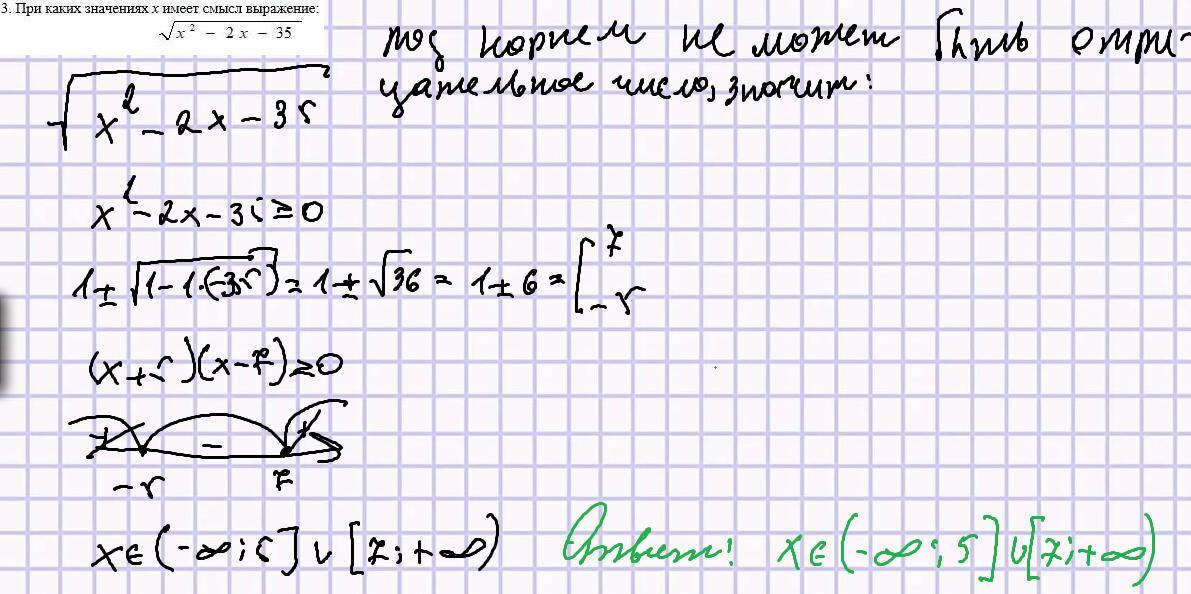 3. При каких значениях x имеет смысл выражение:
√(x² − 2x − 35)
под корнем не может быть отри-
цательное число, значит:
√(x² − 2x − 35)
x² − 2x − 35 ≥ 0
1 ± √(1 − 1·(−35)) = 1 ± √36 = 1 ± 6 = [ 7
−5
(x + 5)(x − 7) ≥ 0
+ − +
−5 7
x ∈ (−∞; 5] ∪ [7; +∞) Ответ: x ∈ (−∞; 5] ∪ [7; +∞)